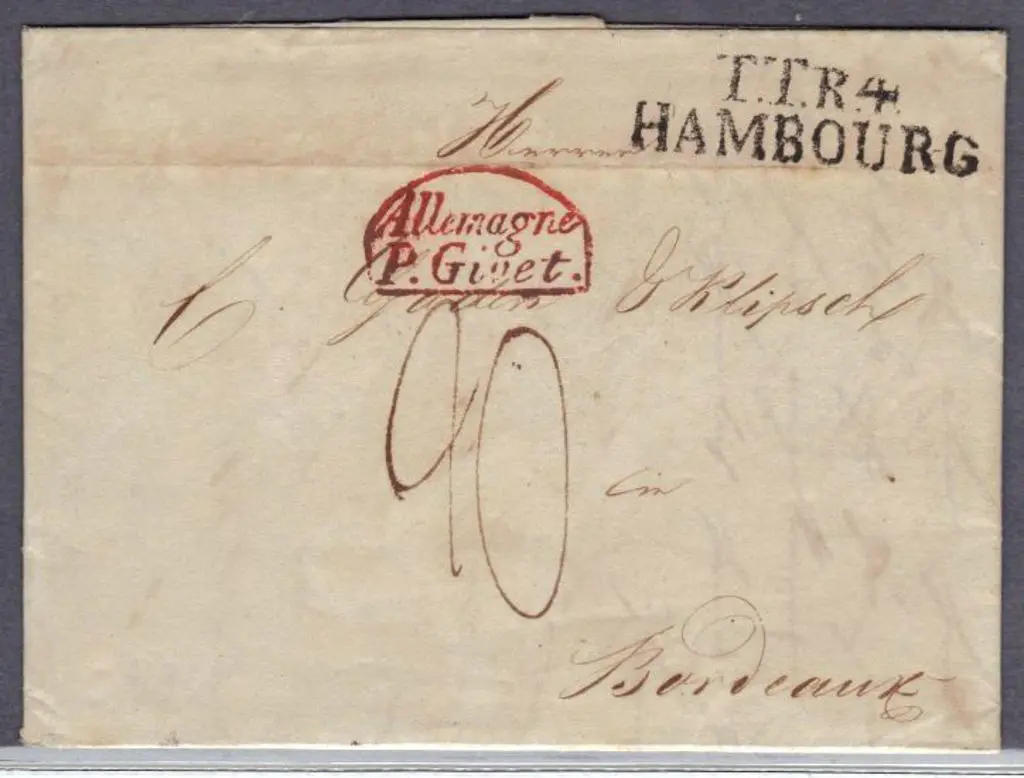 T.T.R.4.
HAMBOURG
Herren
Allemagne
P. Givet.
& Klipsch
40
in
Bordeaux